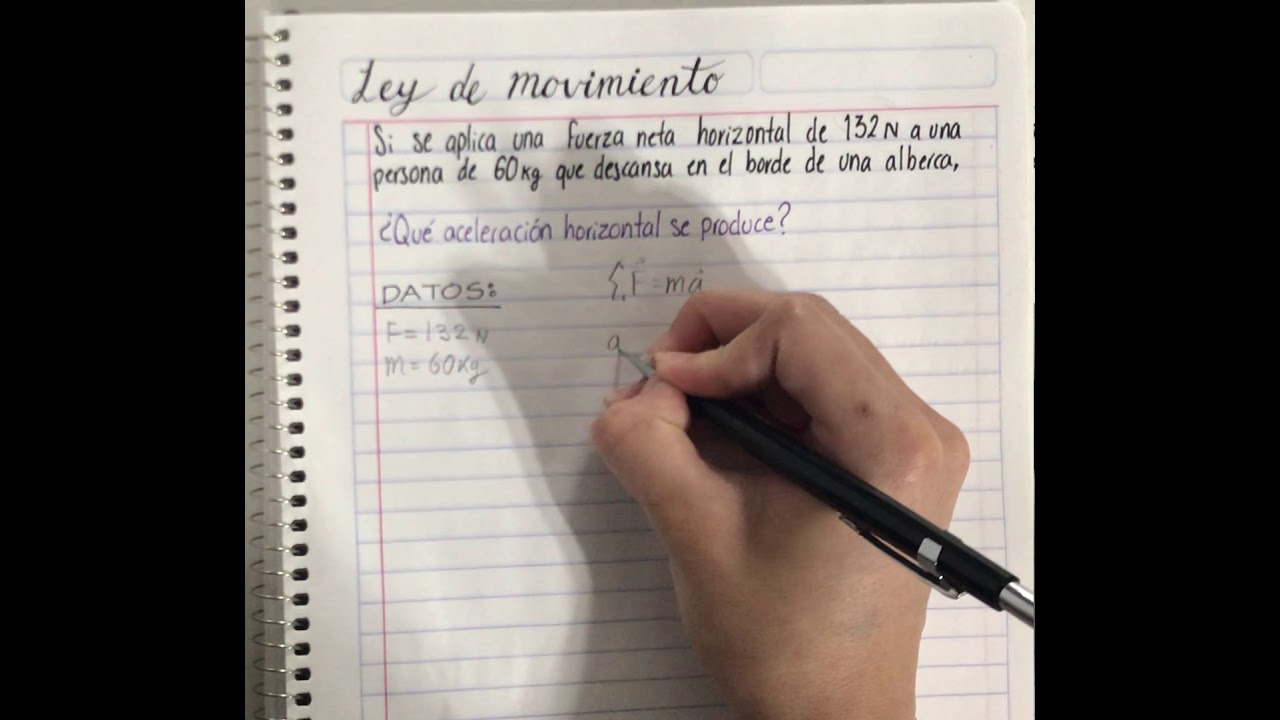 Ley de movimiento
Si se aplica una fuerza neta horizontal de 132 N a una
persona de 60 kg que descansa en el borde de una alberca,
¿Qué aceleración horizontal se produce?
DATOS:
ΣF⃗ = ma⃗
F = 132 N
m = 60 Kg
a